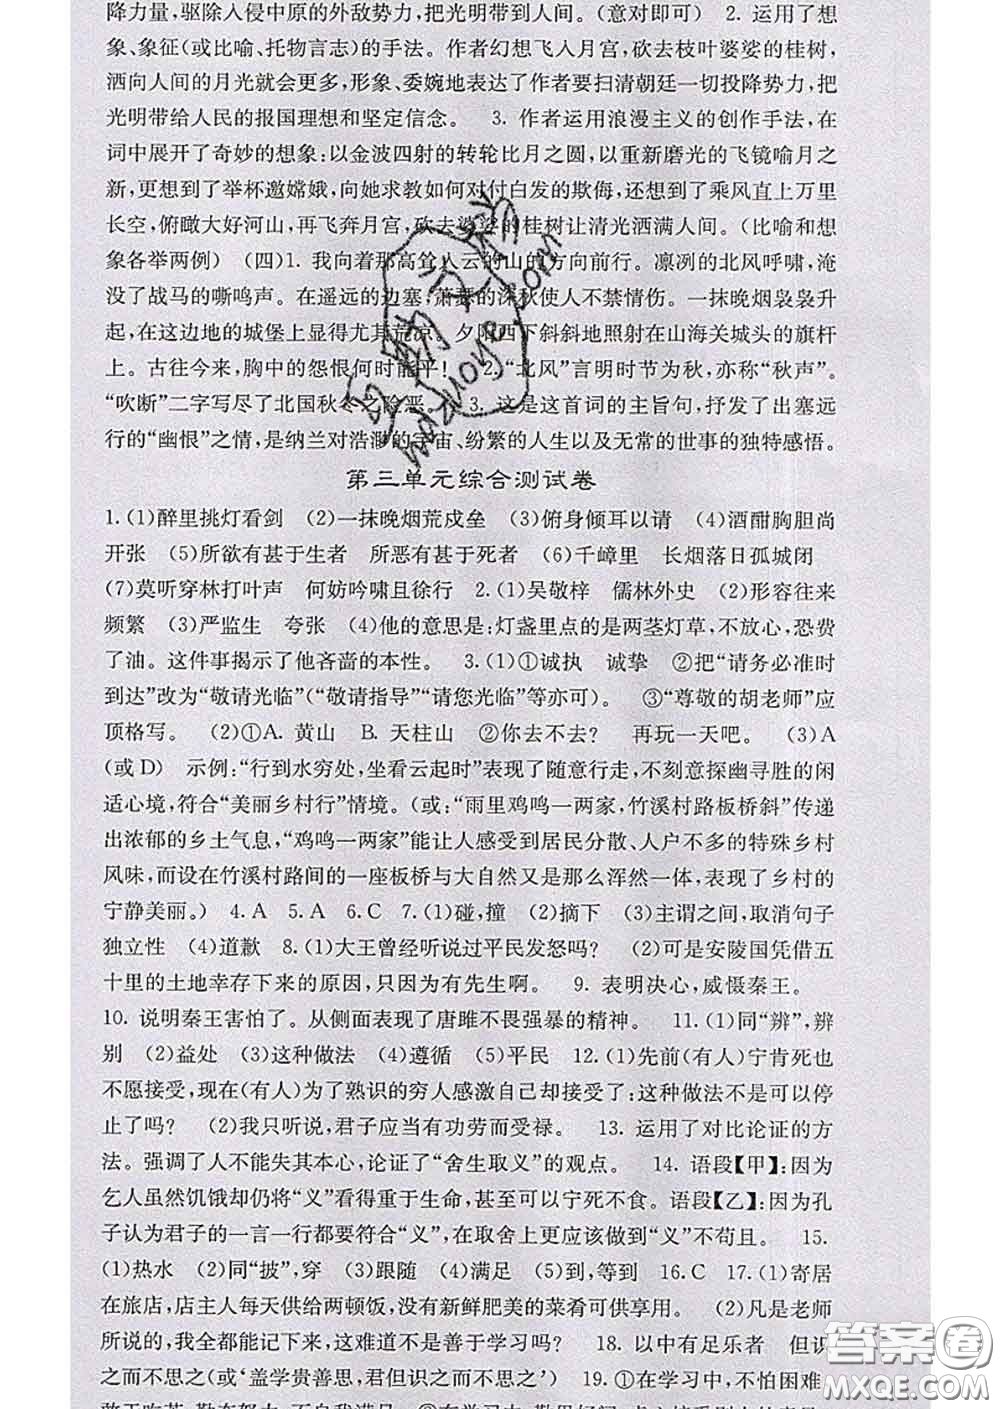 降力量,驱除入侵中原的外敌势力,把光明带到人间。(意对即可) 2. 运用了想
象、象征(或比喻、托物言志)的手法。作者幻想飞入月宫,砍去枝叶婆娑的桂树,
洒向人间的月光就会更多,形象、委婉地表达了作者要扫清朝廷一切投降势力,把
光明带给人民的报国理想和坚定信念。 3. 作者运用浪漫主义的创作手法,在
词中展开了奇妙的想象:以金波四射的转轮比月之圆,以重新磨光的飞镜喻月之
新,更想到了举杯邀嫦娥,向她求教如何对付白发的欺侮,还想到了乘风直上万里
长空,俯瞰大好河山,再飞奔月宫,砍去婆娑的桂树让清光洒满人间。(比喻和想
象各举两例) (四)1. 我向着那高耸入云的山的方向前行。凛冽的北风呼啸,淹
没了战马的嘶鸣声。在遥远的边塞,萧瑟的深秋使人不禁情伤。一抹晚烟袅袅升
起,在这边地的城堡上显得尤其荒凉,夕阳西下斜斜地照射在山海关城头的旗杆
上。古往今来,胸中的怨恨何时能平! 2. “北风”言明时节为秋,亦称“秋声”。
“吹断”二字写尽了北国秋冬之险恶。 3. 这是这首词的主旨句,抒发了出塞远
行的“幽恨”之情,是纳兰对浩渺的宇宙、纷繁的人生以及无常的世事的独特感悟。
第三单元综合测试卷
1. (1)醉里挑灯看剑 (2)一抹晚烟荒戍垒 (3)俯身倾耳以请 (4)酒酣胸胆尚
开张 (5)所欲有甚于生者 所恶有甚于死者 (6)千嶂里 长烟落日孤城闭
(7)莫听穿林打叶声 何妨吟啸且徐行 2. (1)吴敬梓 儒林外史 (2)形容往来
频繁 (3)严监生 夸张 (4)他的意思是:灯盏里点的是两茎灯草,不放心,恐费
了油。这件事揭示了他吝啬的本性。 3. (1)①诚执 诚挚 ②把“请务必准时
到达”改为“敬请光临”(“敬请指导”“请您光临”等亦可)。 ③“尊敬的胡老师”应
顶格写。 (2)①A. 黄山 B. 天柱山 ②你去不去? 再玩一天吧。 (3)A
(或D) 示例:“行到水穷处,坐看云起时”表现了随意行走,不刻意探幽寻胜的闲
适心境,符合“美丽乡村行”情境。(或:“雨里鸡鸣一两家,竹溪村路板桥斜”传递
出浓郁的乡土气息,“鸡鸣一两家”能让人感受到居民分散、人户不多的特殊乡村
风味,而设在竹溪村路间的一座板桥与大自然又是那么浑然一体,表现了乡村的
宁静美丽。) 4. A 5. A 6. C 7. (1)碰,撞 (2)摘下 (3)主谓之间,取消句子
独立性 (4)道歉 8. (1)大王曾经听说过平民发怒吗? (2)可是安陵国凭借五
十里的土地幸存下来的原因,只因为有先生啊。 9. 表明决心,威慑秦王。
10. 说明秦王害怕了。从侧面表现了唐雎不畏强暴的精神。 11. (1)同“辨”,辨
别 (2)益处 (3)这种做法 (4)遵循 (5)平民 12. (1)先前(有人)宁肯死也
不愿接受,现在(有人)为了熟识的穷人感激自己却接受了;这种做法不是可以停
止了吗? (2)我只听说,君子应当有功劳而受禄。 13. 运用了对比论证的方
法。强调了人不能失其本心,论证了“舍生取义”的观点。 14. 语段【甲】:因为
乞人虽然饥饿却仍将“义”看得重于生命,甚至可以宁死不食。语段【乙】:因为孔
子认为君子的一言一行都要符合“义”,在取舍上更应该做到“义”不苟且。 15.
(1)热水 (2)同“披”,穿 (3)跟随 (4)满足 (5)到,等到 16. C 17. (1)寄居
在旅店,店主人每天供给两顿饭,没有新鲜肥美的菜肴可供享用。 (2)凡是老师
所说的,我全都能记下来,这难道不是善于学习吗? 18. 以中有足乐者 但识
之而不思之(或‘盖学贵善思,君但识之而不思之’) 19. ①在学习中,不怕困难,
答案圈
MXQE.COM